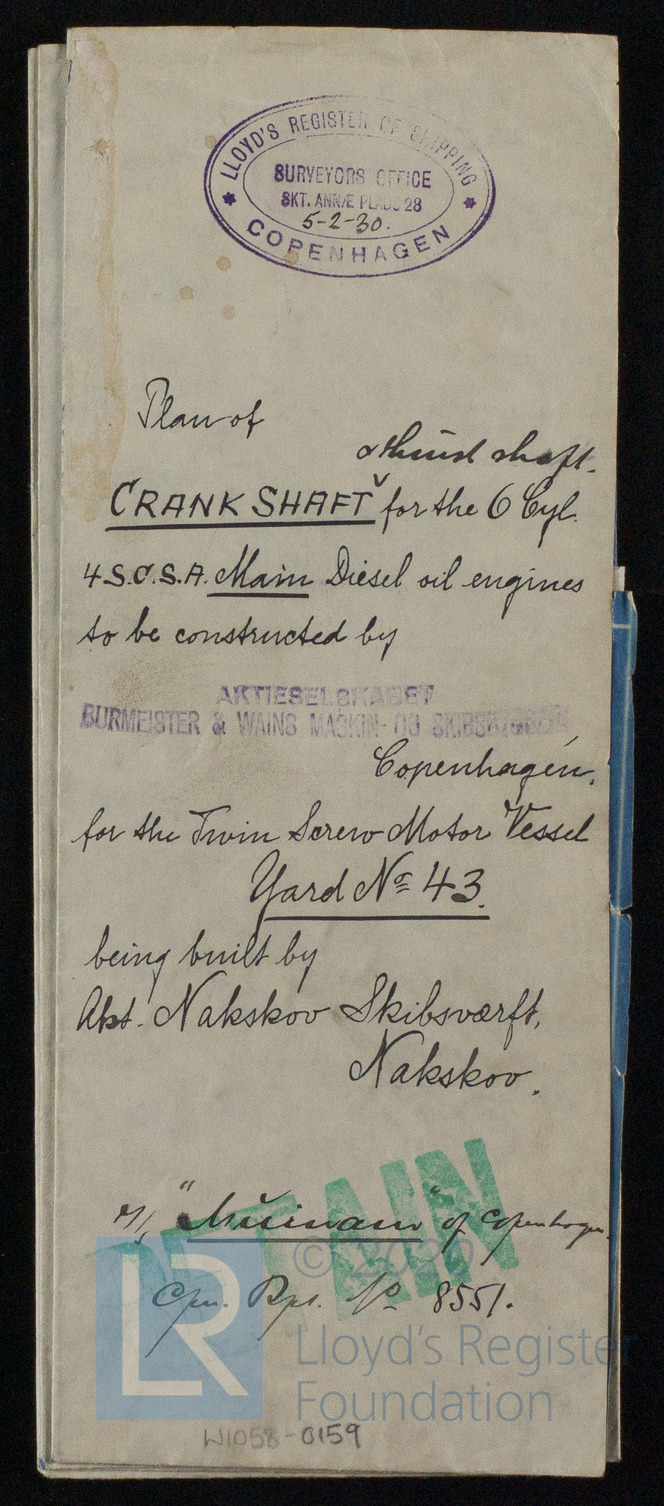 LLOYD'S REGISTER OF SHIPPING
SURVEYORS OFFICE
SKT. ANNÆ PLADS 28
5-2-30.
COPENHAGEN
Plan of
& thrust shaft.
CRANK SHAFT for the 6 Cyl.
4 S.C.S.A. Main Diesel oil engines
to be constructed by
AKTIESELSKABET
BURMEISTER & WAINS MASKIN- OG SKIBSBYGGERI
Copenhagen.
for the Twin Screw Motor Vessel
Yard No 43.
being built by
Akt. Nakskov Skibsværft,
Nakskov.
of Copenhagen
Cpn. Rpt. No 8551.
© 2020
LR
Lloyd's Register
Foundation
W1058-0159